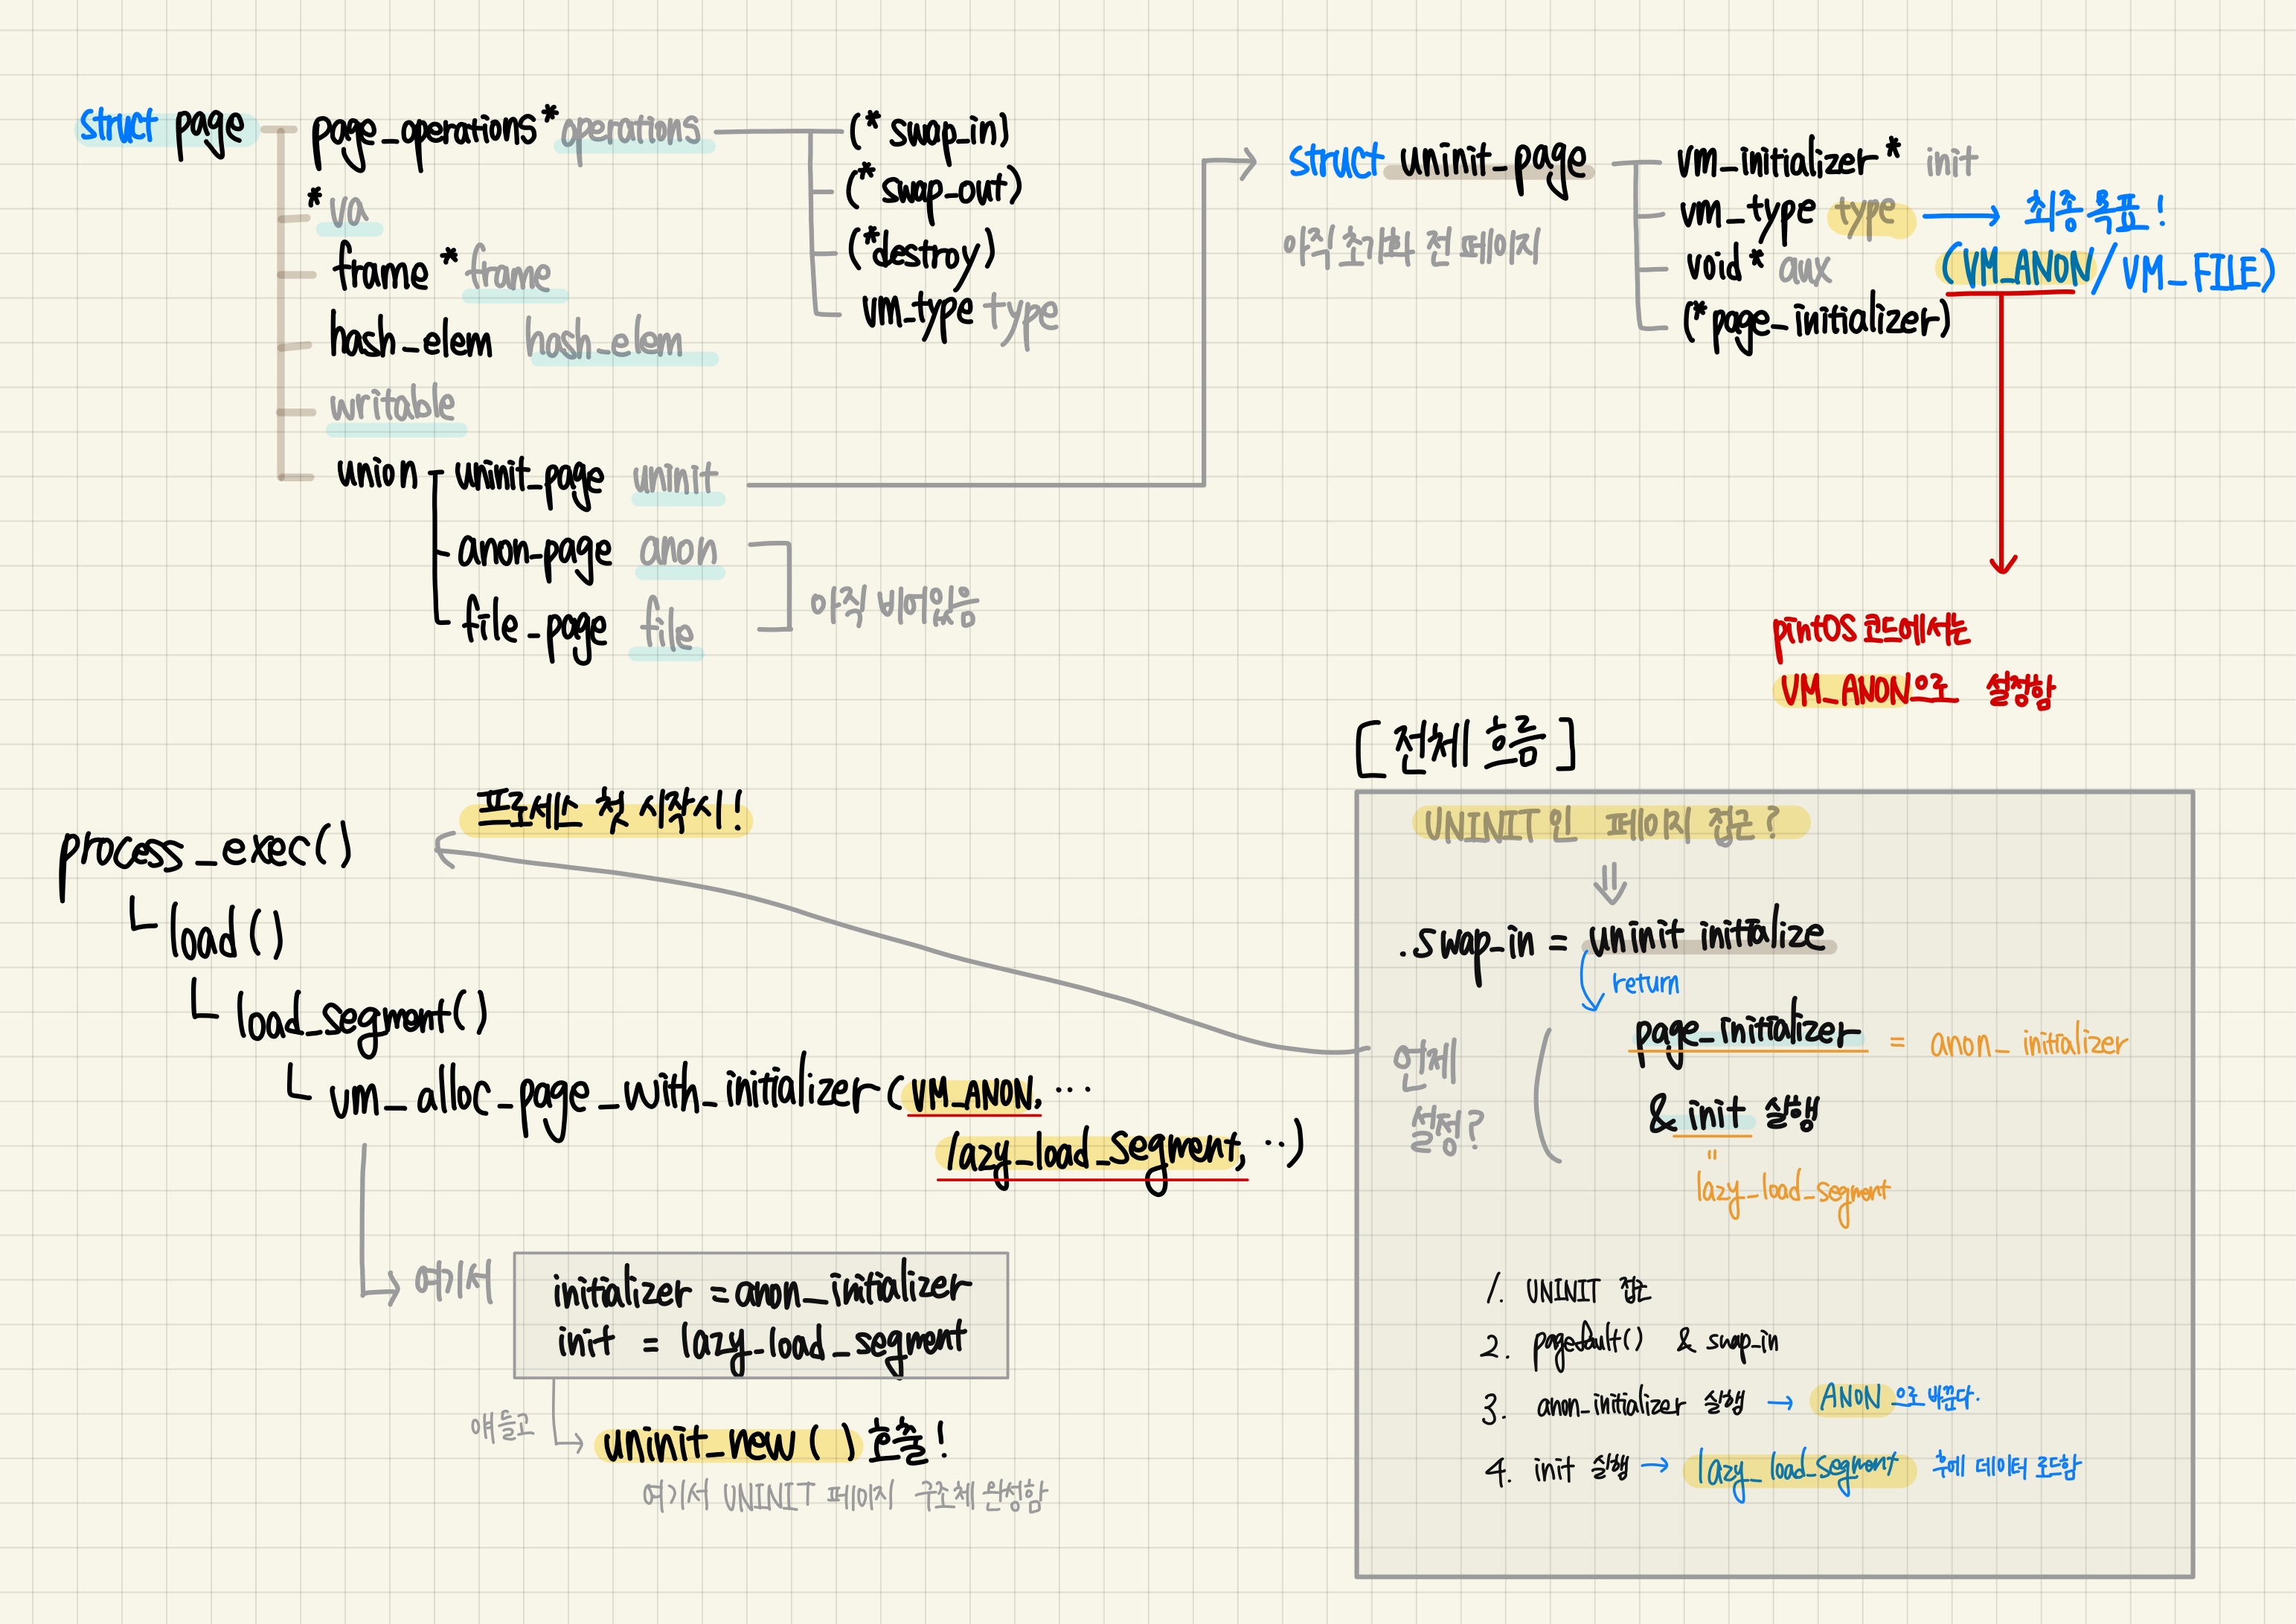 struct page
page_operations * operations
* va
frame * frame
hash_elem hash_elem
writable
union
uninit_page uninit
anon_page anon
file_page file
아직 비어있음
(* swap_in)
(* swap_out)
(*destroy)
vm_type type
struct uninit_page
아직 초기화 전 페이지
vm_initializer * init
vm_type type → 최종 목표!
(VM_ANON/VM_FILE)
void * aux
(*page_initializer)
pintOS 코드에서는
VM_ANON으로 설정함
프로세스 첫 시작시!
process_exec()
load()
load_segment()
vm_alloc_page_with_initializer (VM_ANON, ...
lazy_load_segment, ..)
여기서
initializer = anon_initializer
init = lazy_load_segment
얘들고
uninit_new() 호출!
여기서 UNINIT 페이지 구조체 완성함
[전체 흐름]
UNINIT 인 페이지 접근?
.swap_in = uninit initialize
return
page_initializer = anon_initializer
& init 실행
"
lazy_load_segment
언제
설정?
1. UNINIT 접근
2. pagefault() & swap_in
3. anon_initializer 실행 → ANON 으로 바꾼다.
4. init 실행 → lazy_load_segment 후에 데이터 로드함